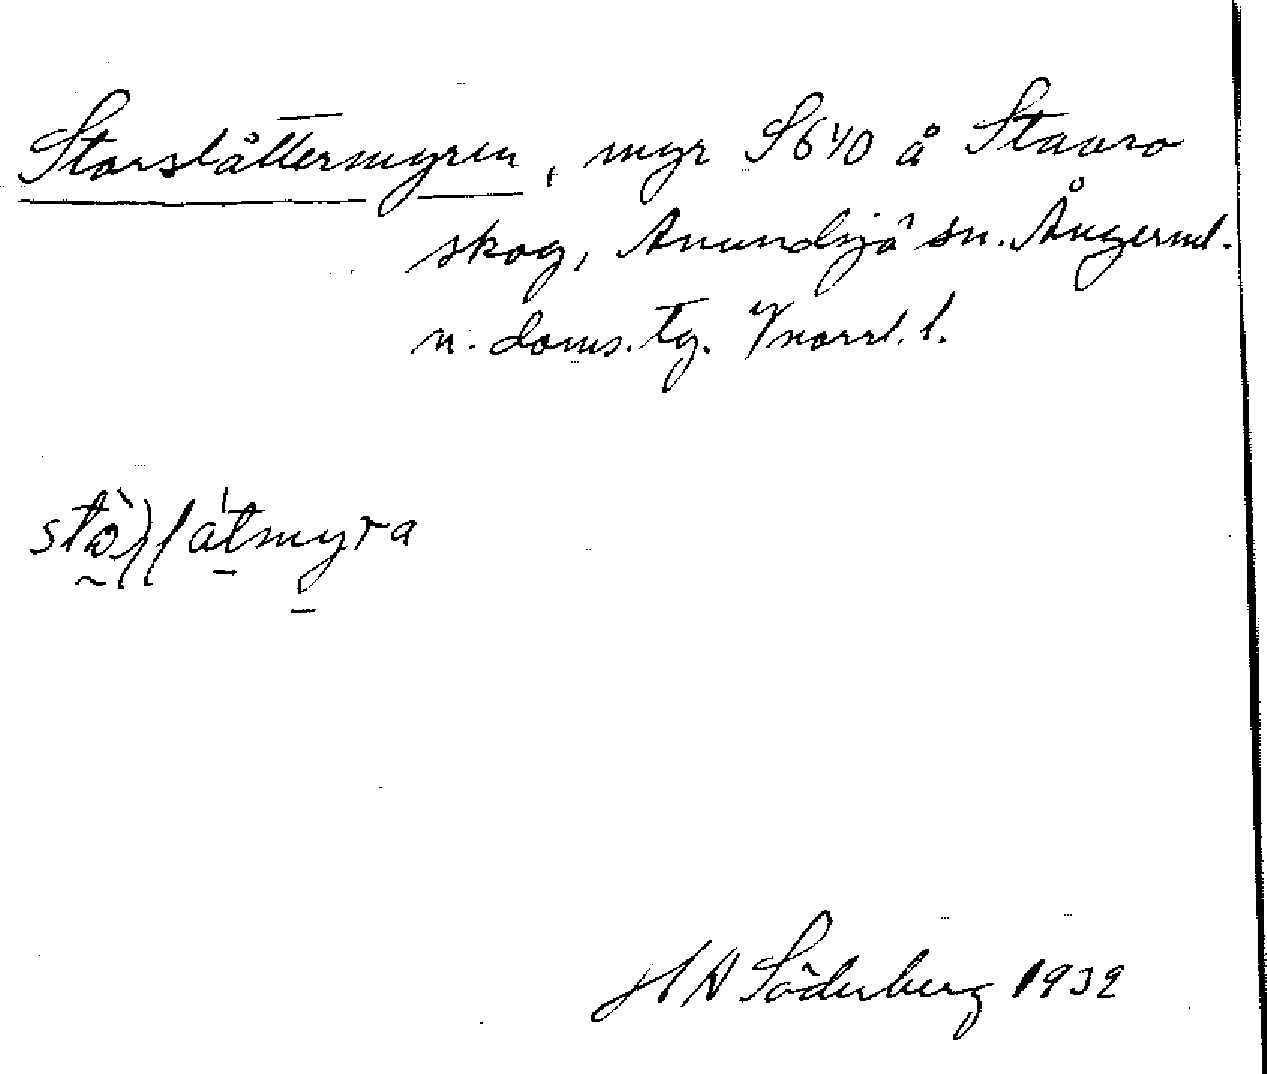 Storslåttermyren, myr S640 å Stavro
skog, Anundsjö sn. Ångerml.
n. doms. tg. V norrl. l.
H A Söderberg 1932